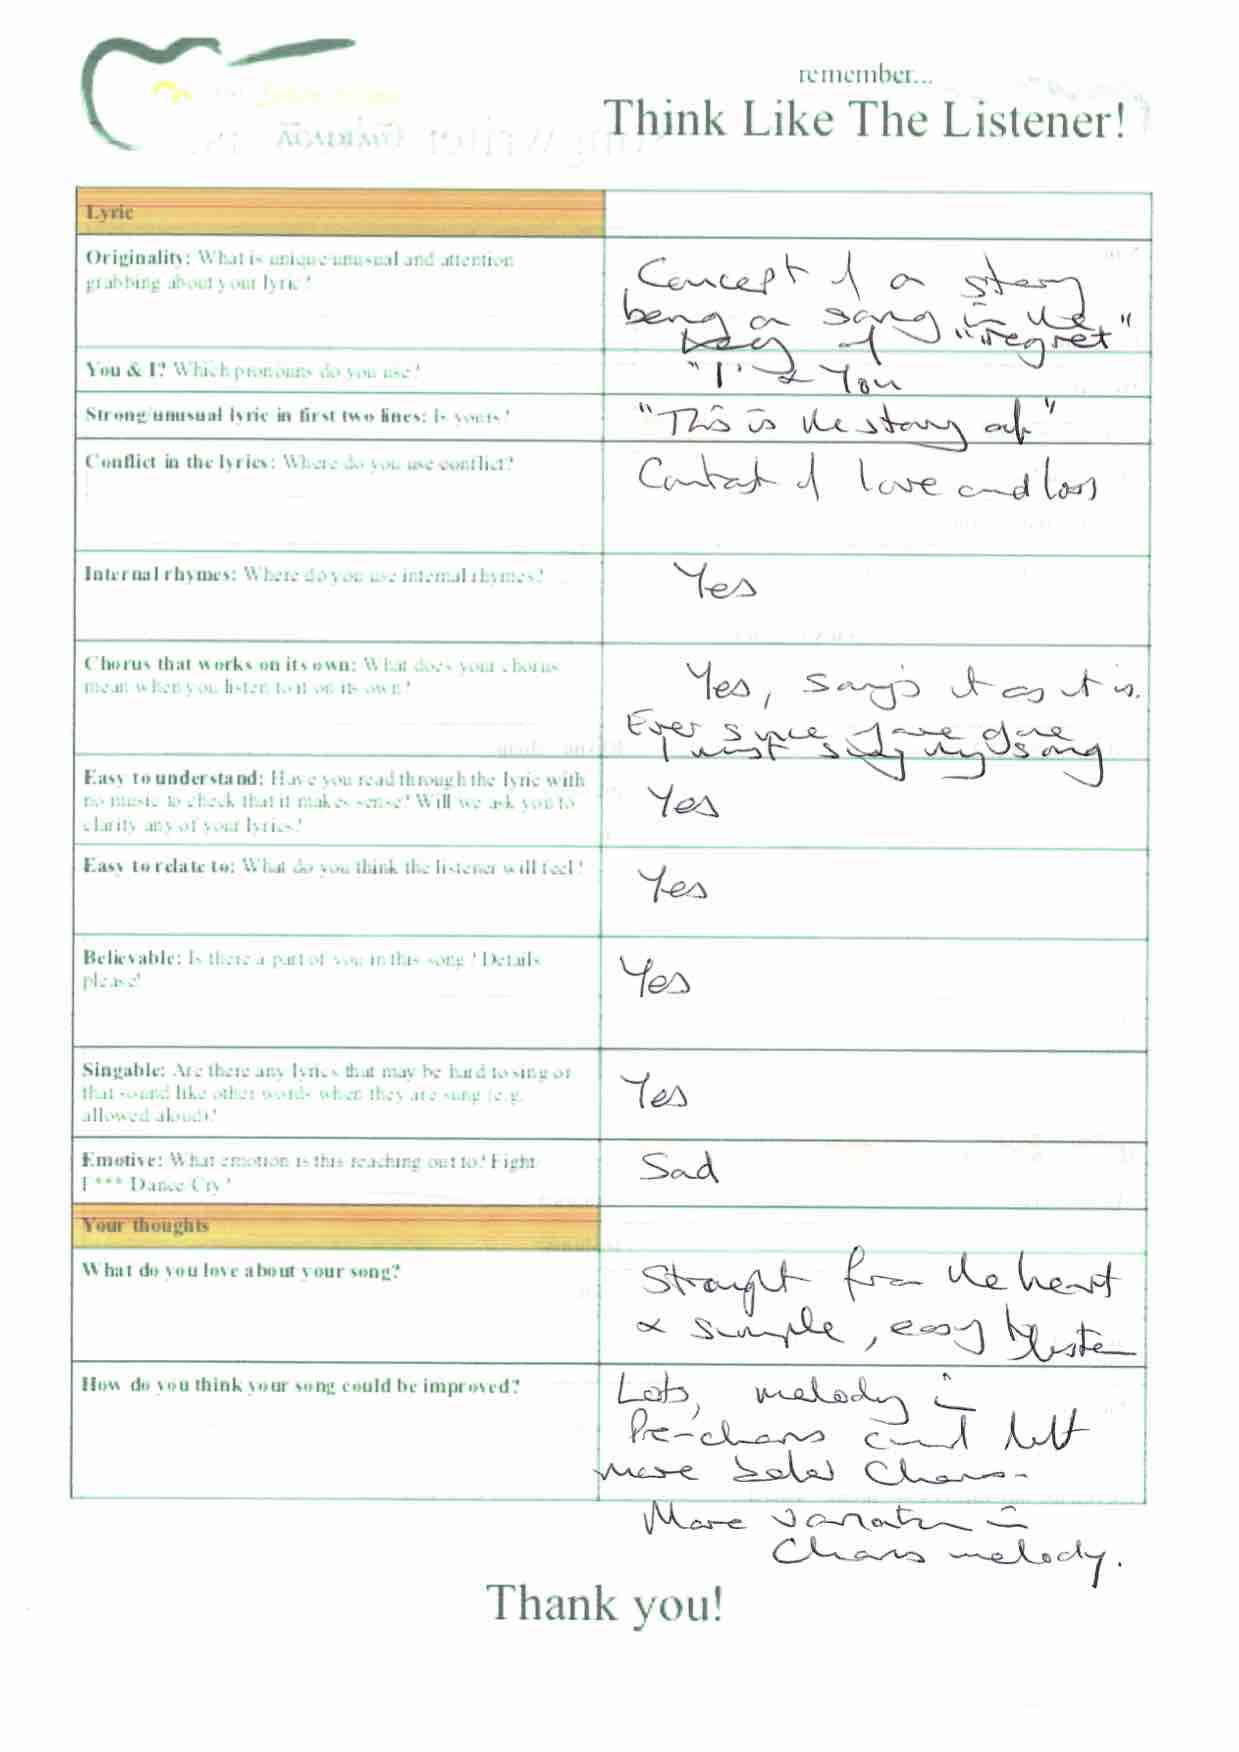 remember...
Think Like The Listener!
Lyric
Originality: What is unique/unusual and attention
grabbing about your lyric?
Concept of a story
being a song in the
key of "regret"
You & I? Which pronouns do you use?
"I" & You
Strong/unusual lyric in first two lines: Is yours?
"This is the story of"
Conflict in the lyrics: Where do you use conflict?
Contrast of love and loss
Internal rhymes: Where do you use internal rhymes?
Yes
Chorus that works on its own: What does your chorus
mean when you listen to it on its own?
Yes, says it as it is.
Ever since you're gone
I must sing my song
Easy to understand: Have you read through the lyric with
no music to check that it makes sense? Will we ask you to
clarify any of your lyrics?
Yes
Easy to relate to: What do you think the listener will feel?
Yes
Believable: Is there a part of you in this song? Details
please!
Yes
Singable: Are there any lyrics that may be hard to sing or
that sound like other words when they are sung (e.g.
allowed/aloud)?
Yes
Emotive: What emotion is this reaching out to? Fight
F*** Dance Cry?
Sad
Your thoughts
What do you love about your song?
Straight from the heart
& simple, easy to listen
How do you think your song could be improved?
Lots, melody in
Pre-chorus and
more Chorus.
More variation in
Chorus melody.
Thank you!